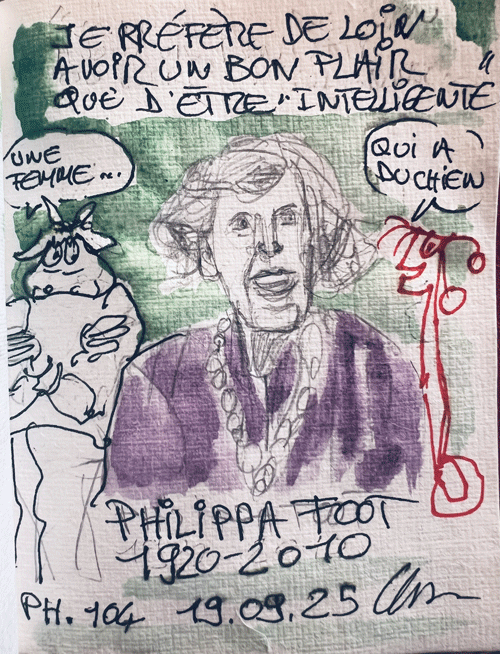 JE PRÉFÈRE DE LOIN
AVOIR UN BON FLAIR
QUE D'ÊTRE "INTELLIGENTE"
UNE
FEMME...
QUI A
DU CHIEN
PHILIPPA FOOT
1920-2010
PH. 104 19.09.25